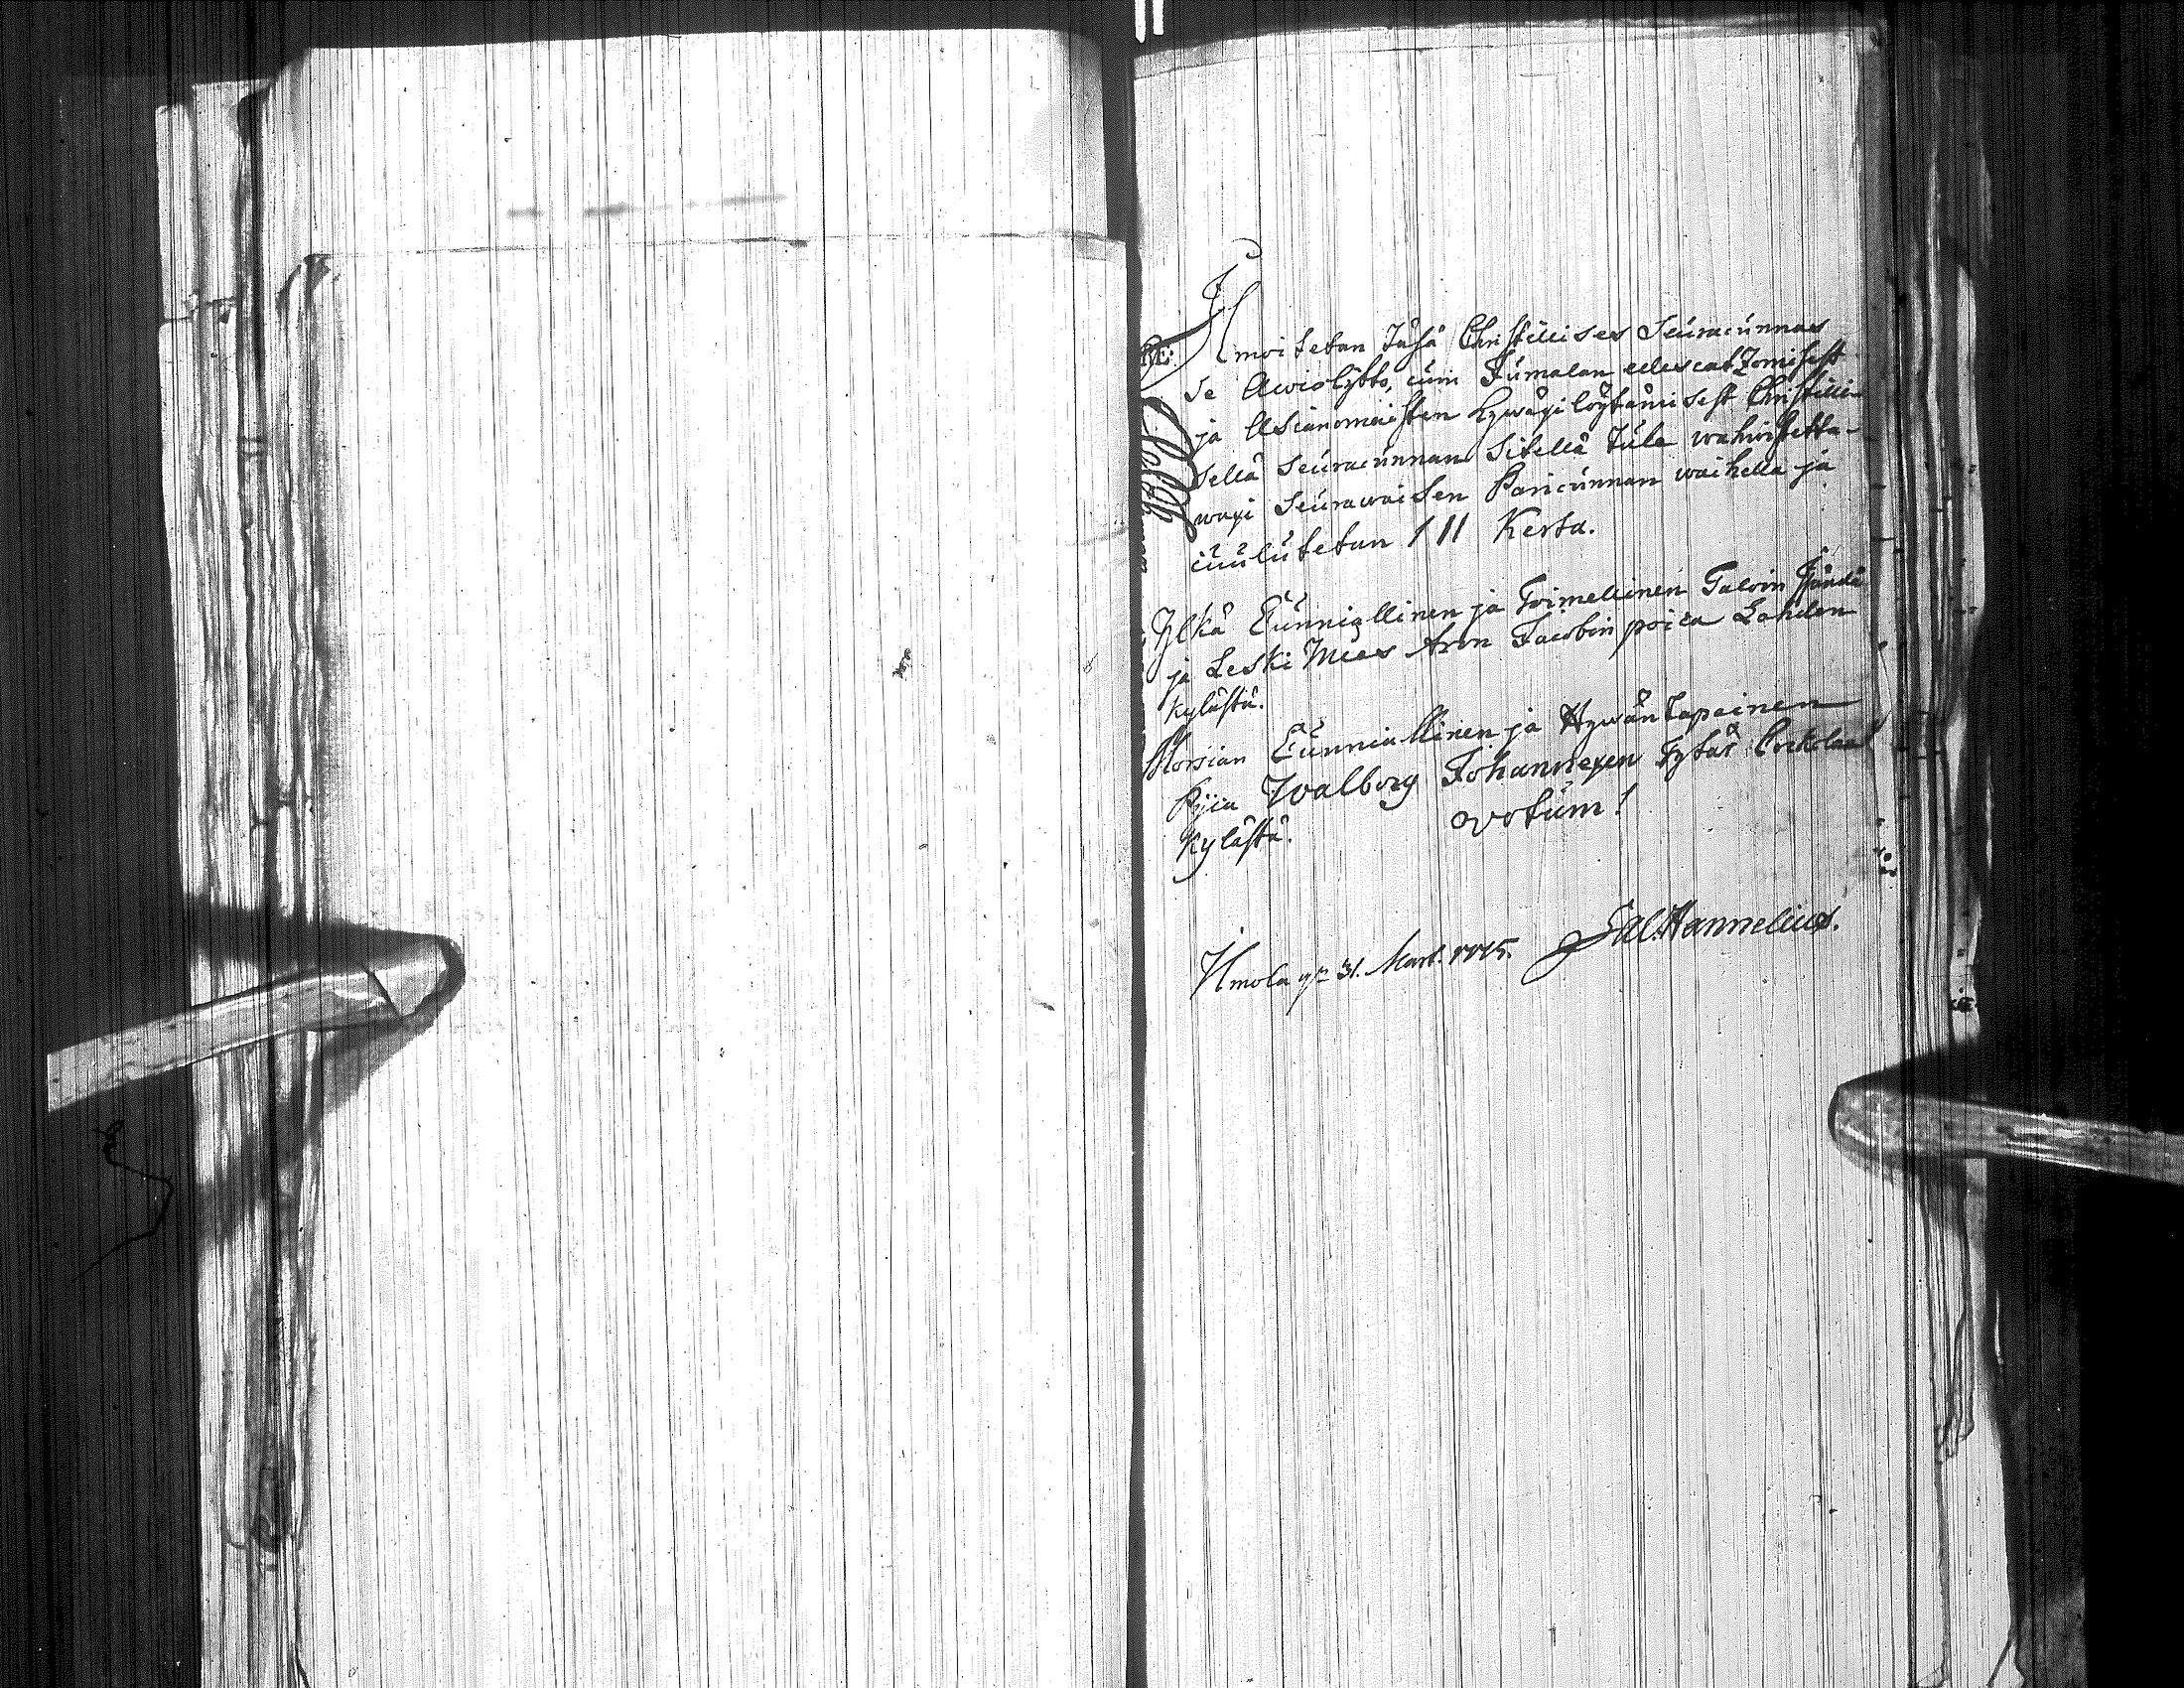 Ilmoitetan Täsä Christillises Seuracunnas
se Awiokätto, cuin Jumalan edescatzomisest
ja Asianomaisten hywäxi löytämisest Christilli-
sellä Seuracunnan Sitellä tule wahwistetta-
waxi Seurawaisen Paricunnan waihella ja
cuulutetan 1 11 Kerta.
Ylkä Cunniallinen ja Toimellinen Taloin Isändä
ja Leski Mies Aron Jacobin poica Lahden
kylästä.
Morsian Cunniallinen ja Hywän tapainen
Pijca Walborg Johannexen Tytär
Kylästä. votum!
Ilmola 31. Mart. Sal. Hannelius.